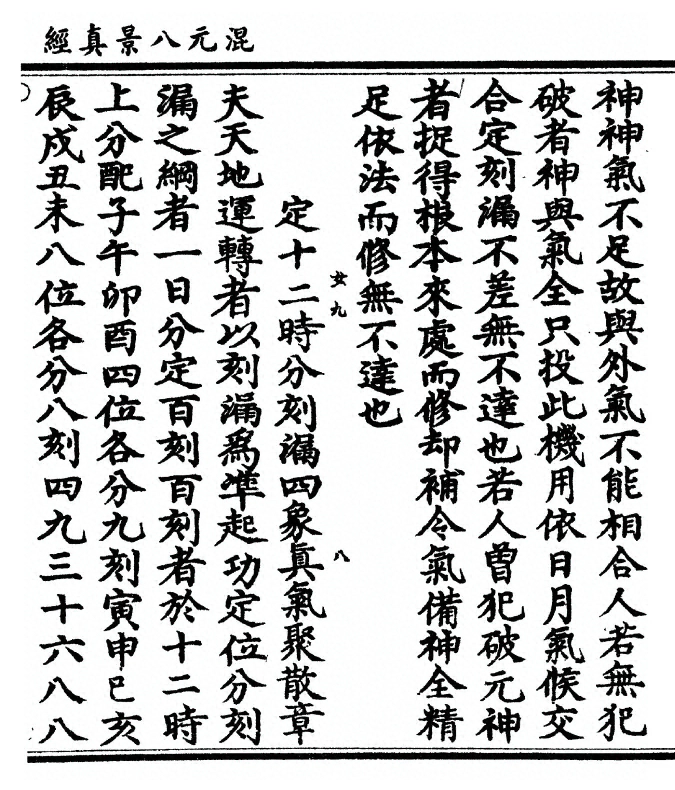 混元八景真經
神神氣不足故與外氣不能相合人若無犯
破者神與氣全只投此機用依日月氣候交
合定刻漏不差無不達也若人曾犯破元神
者捉得根本來處而修却補令氣備神全精
足依法而修無不達也
定十二時分刻漏四象真氣聚散章
女九
八
夫天地運轉者以刻漏爲準起功定位分刻
漏之綱者一日分定百刻百刻者於十二時
上分配子午卯酉四位各分九刻寅申巳亥
辰戌丑未八位各分八刻四九三十六八八